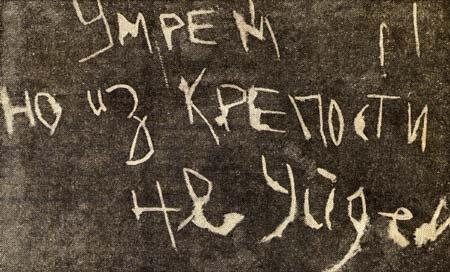 УМРЕМ !!
НО ИЗ КРЕПОСТИ
не уйдем